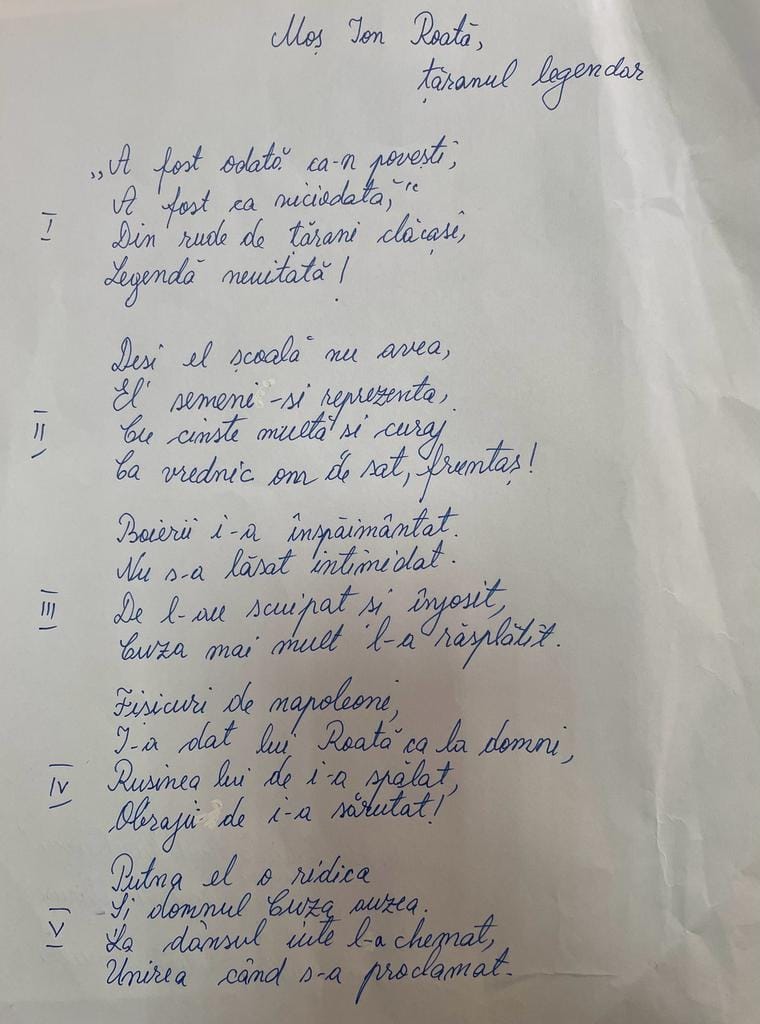 Moș Ion Roată,
țăranul legendar
„A fost odată ca-n povești,
A fost ca niciodată,"
I
Din rude de țărani clăcași,
Legendă neuitată!
Desi el școală nu avea,
El semenii-si reprezenta,
II
Cu cinste multă si curaj
Ca vrednic om de sat, fruntaș!
Boierii i-a înspăimântat.
Nu s-a lăsat intimidat.
III
De l-au scuipat si înjosit,
Cuza mai mult l-a răsplătit.
Fișicuri de napoleoni,
I-a dat lui Roată ca la domni,
IV
Rusinea lui de i-a spălat,
Obrajii de i-a sărutat!
Putna el o ridica
Si domnul Cuza auzea.
V
La dânsul iute l-a chemat,
Unirea când s-a proclamat.